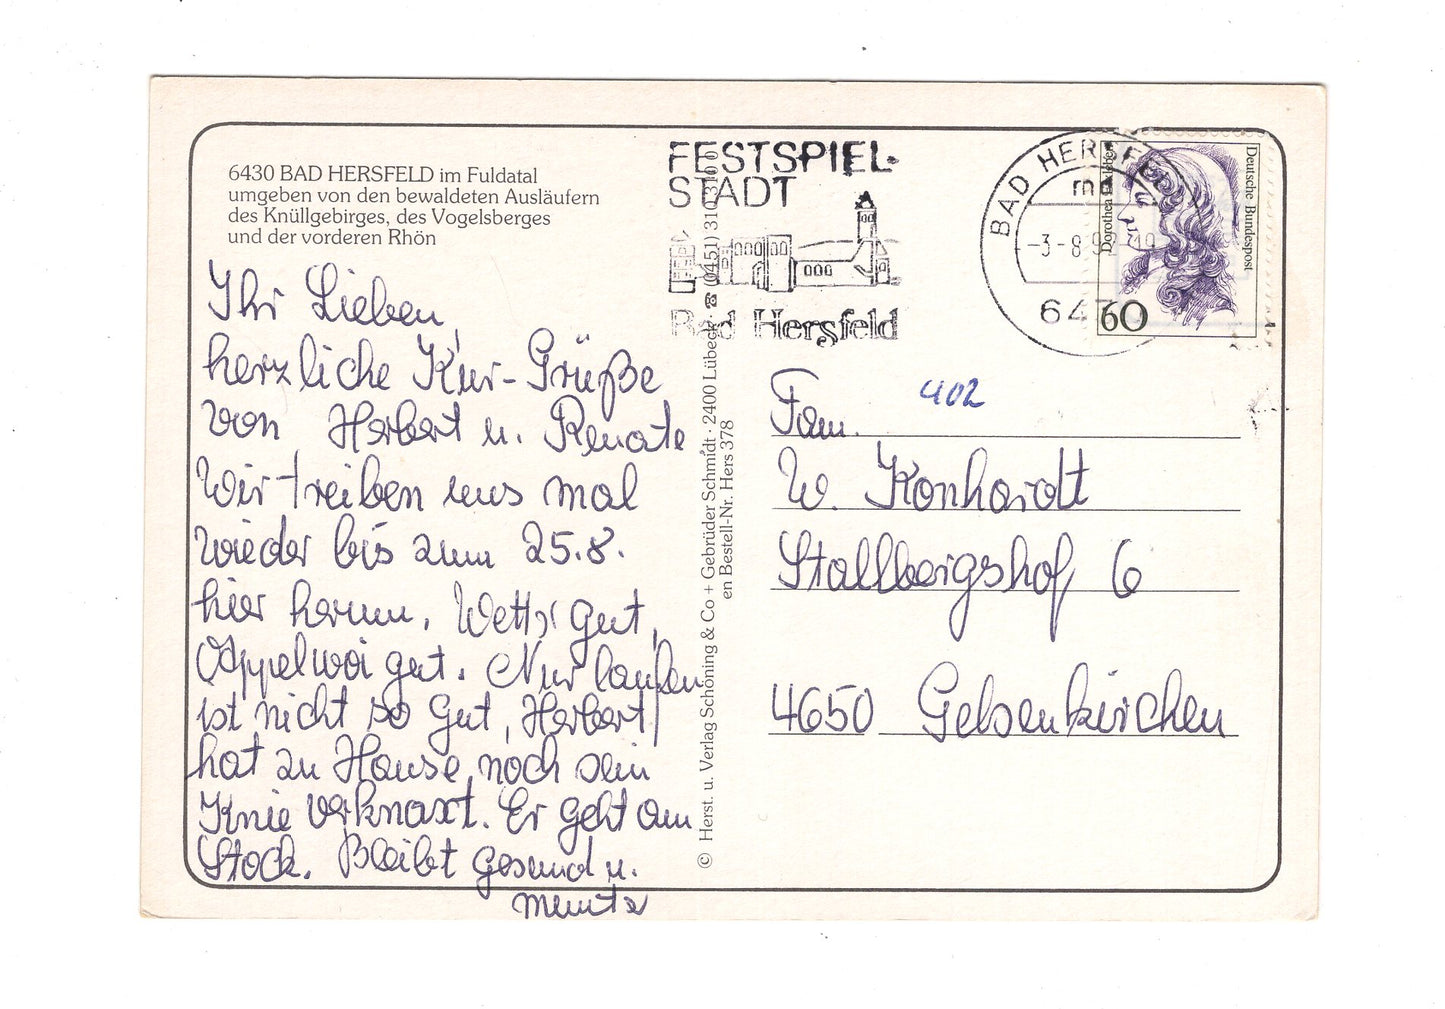 6430 BAD HERSFELD im Fuldatal
umgeben von den bewaldeten Ausläufern
des Knüllgebirges, des Vogelsberges
und der vorderen Rhön
Ihr Lieben,
herzliche Kur-Grüße
von Herbert u. Renate
Wir treiben uns mal
wieder bis zum 25.8.
hier herum. Wetter gut,
Äppelwoi gut. Nur laufen
ist nicht so gut, Herbert
hat zu Hause noch sein
Knie verknaxt. Er geht am
Stock. Bleibt gesund u.
munter
© Herst. u. Verlag Schöning & Co + Gebrüder Schmidt · 2400 Lübeck · ☎ (0451) 310310
en Bestell-Nr. Hers 378
FESTSPIEL-
STADT
Bad Hersfeld
BAD HERSFELD
-3.-8.
Dorothea
Deutsche Bundespost
60
402
Fam.
W. Konhardt
Stallbergshof 6
4650 Gelsenkirchen